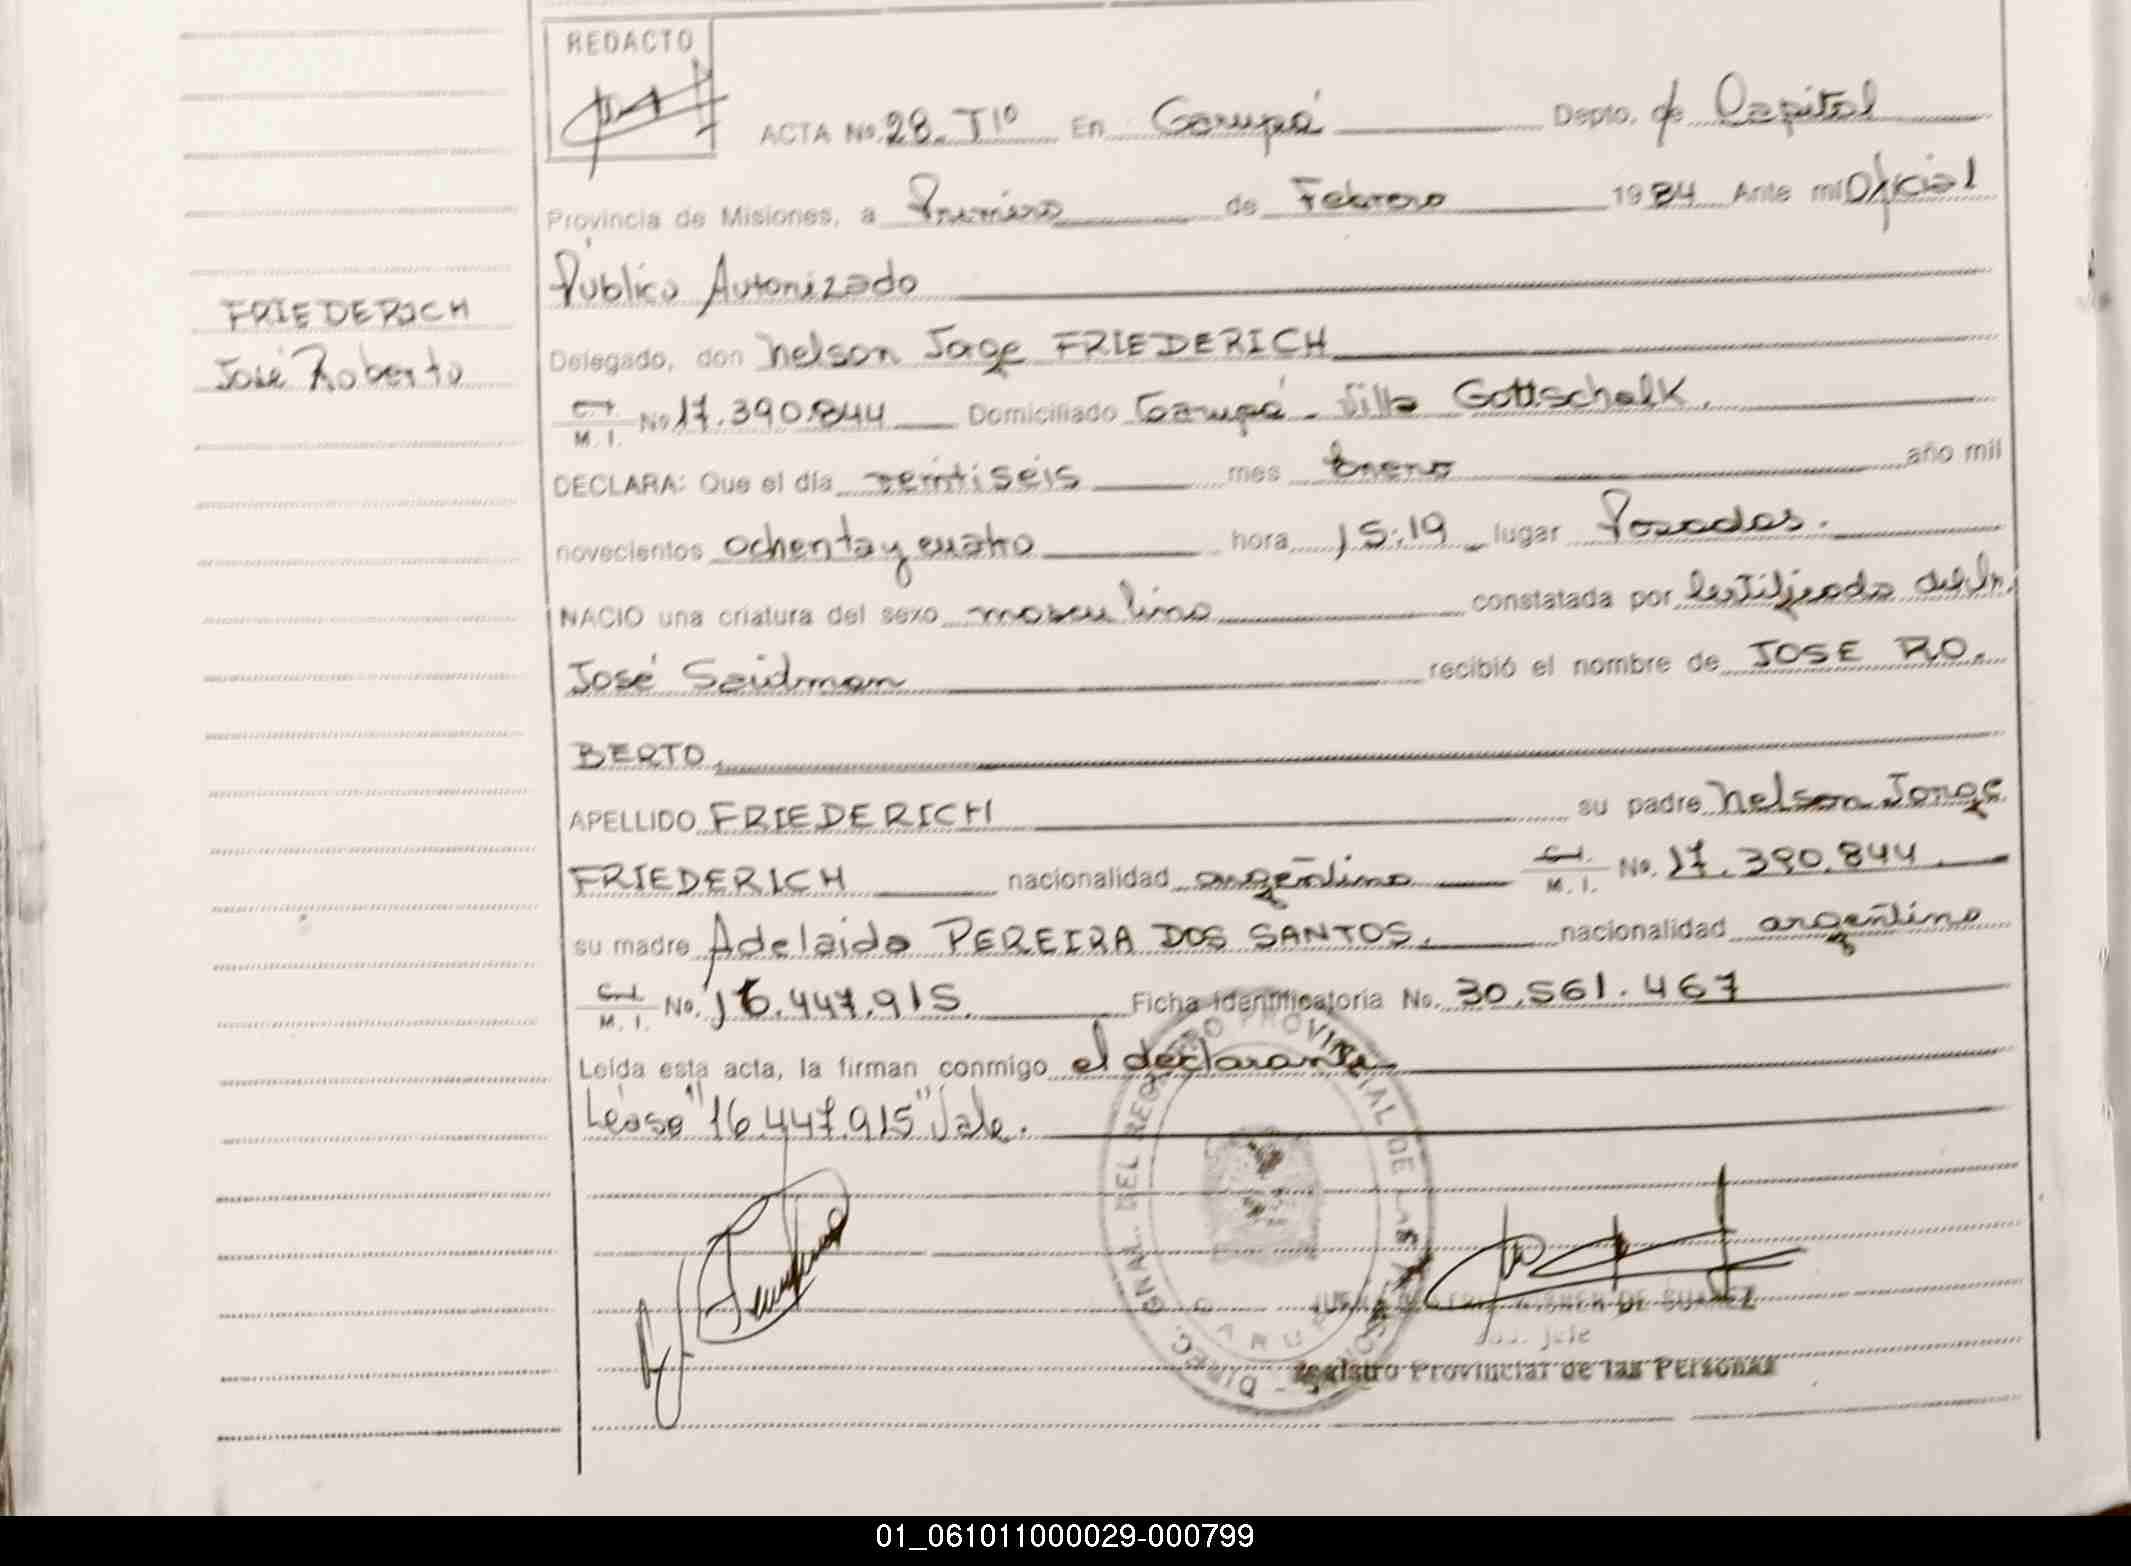 REDACTO
ACTA No. 28. T1º En Garupá Depto. de Capital
Provincia de Misiones, a Primero de Febrero 1984 Ante mi Oficial
Público Autorizado
FRIEDERICH
José Roberto
Delegado, don Nelson Joge FRIEDERICH
C.I. M. I. No 17.390.844 Domiciliado Garupá - Villa Gottschalk.
DECLARA: Que el día veintiseis mes Enero año mil
novecientos ochenta y cuatro hora 15:19 lugar Posadas.
NACIO una criatura del sexo masculino constatada por Certificado del Dr.
José Seidman recibió el nombre de JOSE RO.
BERTO.
APELLIDO FRIEDERICH su padre Nelson Jorge
FRIEDERICH nacionalidad argentino C.I. M. I. No. 17.390.844
su madre Adelaida PEREIRA DOS SANTOS. nacionalidad argentina
C.I. M. I. No. 16.447.915. Ficha Identificatoria No. 30.561.467
Leída esta acta, la firman conmigo el declarante
Léase "16.447.915" Vale.
DIREC. GNAL. DEL REGISTRO PROVINCIAL DE LAS PERSONAS
GARUPA
DE SUAREZ
Jefe
Registro Provincial de las Personas
01_061011000029-000799